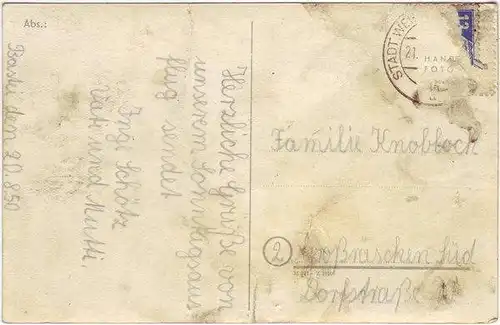 Abs.:
Herzliche Grüße von
unserem Sonntagsaus
flug sendet
Inge Schötz
Vati und Mutti.
den 20.8.50
STADT WE
21.
HAN
FOTO
Familie Knobloch
2
Großräschen Süd
Dorfstraße